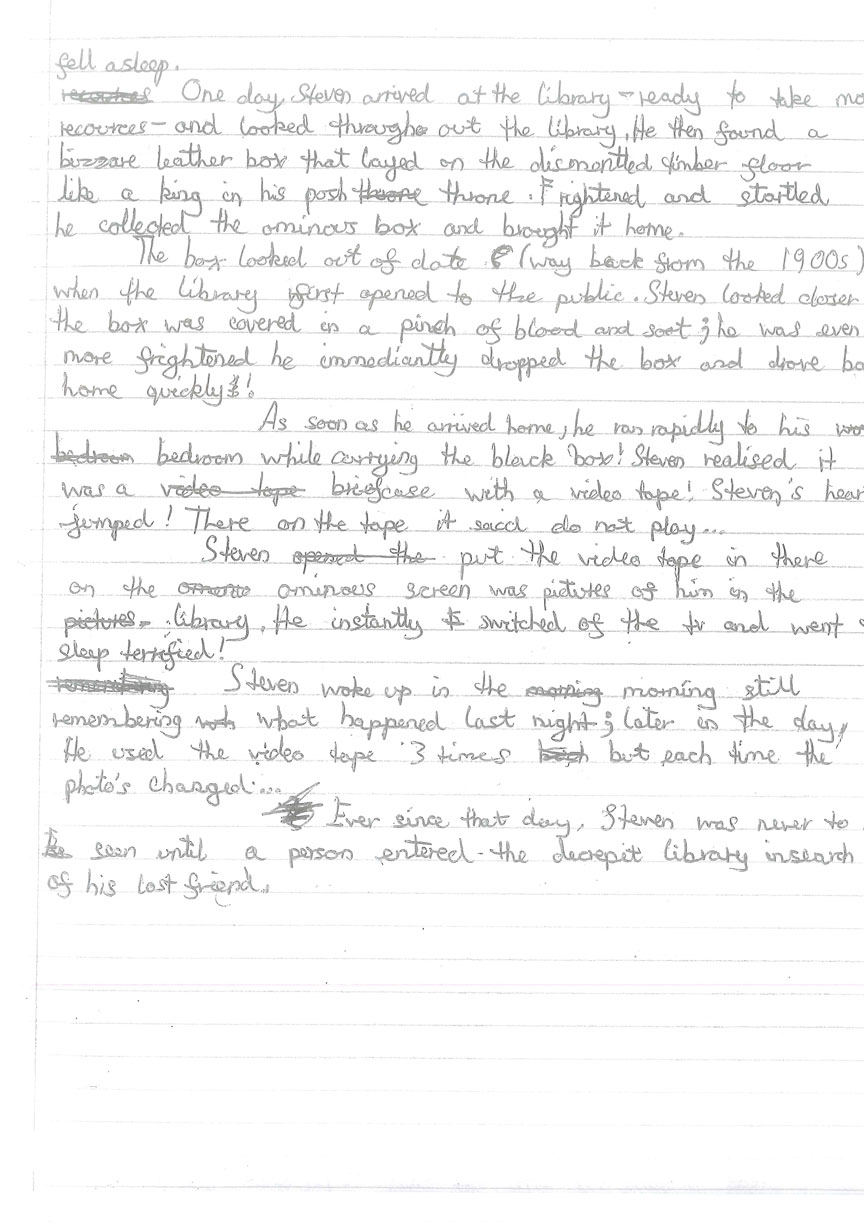 fell asleep.
recources One day, Steven arrived at the library - ready to take mo
recources - and looked through out the library. He then found a
bizzare leather box that layed on the dismantled timber floor
like a king in his posh throne throne. Frightened and startled
he collected the ominous box and brought it home.
The box looked out of date (way back from the 1900s)
when the library first opened to the public. Steven looked closer
the box was covered in a pinch of blood and soot ; he was even
more frightened he immediantly dropped the box and drove ba
home quickly!!
As soon as he arrived home, he ran rapidly to his
bedroom bedroom while carrying the black box! Steven realised it
was a video tape briefcase with a video tape! Steven's hear
jumped! There on the tape it said do not play...
Steven opened the put the video tape in there
on the ominous screen was pictures of him in the
pictures. library. He instantly switched of the tv and went s
sleep terrified!
remembering Steven woke up in the morning morning still
remembering what happened last night ; later in the day,
He used the video tape 3 times but each time the
photo's changed...
Ever since that day, Steven was never to
be seen until a person entered the decrepit library insearch
of his lost friend.